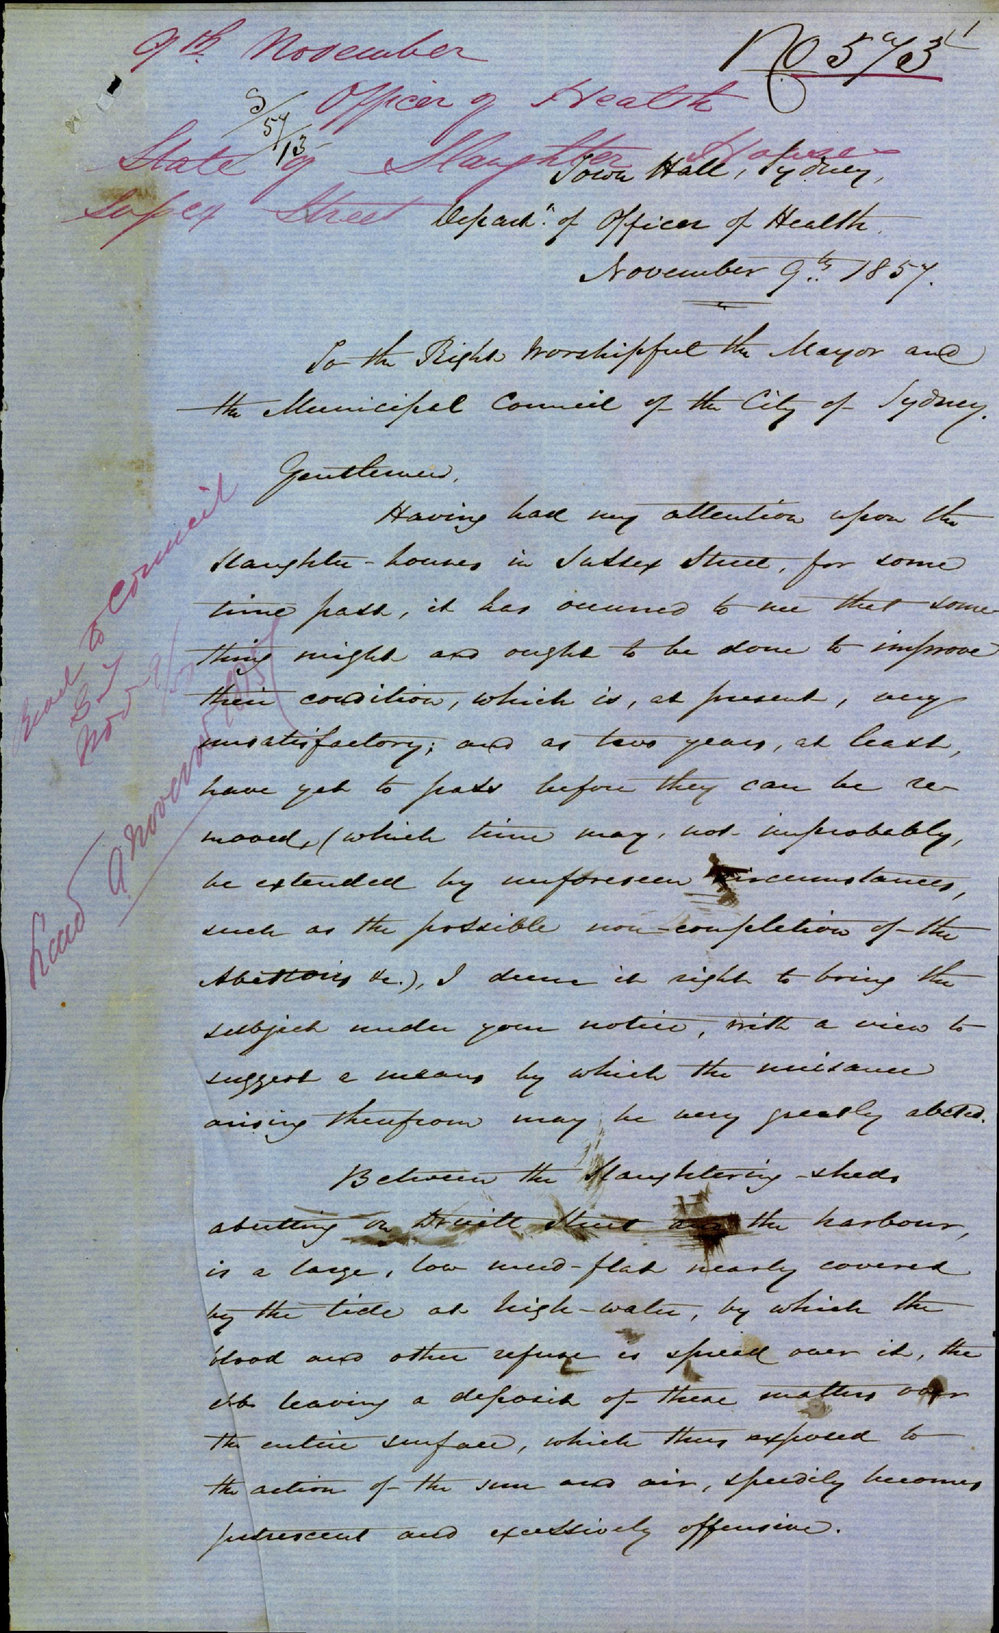 9th November
No 573
Officer of Health
State of Slaughter Houses
Sussex Street
Town Hall, Sydney,
Depart.t of Officer of Health.
November 9th 1857.
To the Right Worshipful the Mayor and
the Municipal Council of the City of Sydney.
Gentlemen,
Having had my attention upon the
Slaughter-houses in Sussex Street, for some
time past, it has occurred to me that some-
thing might and ought to be done to improve
their condition, which is, at present, very
unsatisfactory; and as two years, at least,
have yet to pass before they can be re-
moved, (which time may, not improbably,
be extended by unforeseen circumstances,
such as the possible non-completion of the
Abattoirs &c.), I deem it right to bring the
subject under your notice, with a view to
suggest a means by which the nuisance
arising therefrom may be very greatly abated.
Between the Slaughtering-sheds
abutting on Druitt Street and the harbour,
is a large, low mud-flat nearly covered
by the tide at high-water, by which the
blood and other refuse is spread over it, the
ebb leaving a deposit of these matters over
the entire surface, which thus exposed to
the action of the sun and air, speedily becomes
putrescent and excessively offensive.
Read to Council
Nov 9/57
9 November 1857